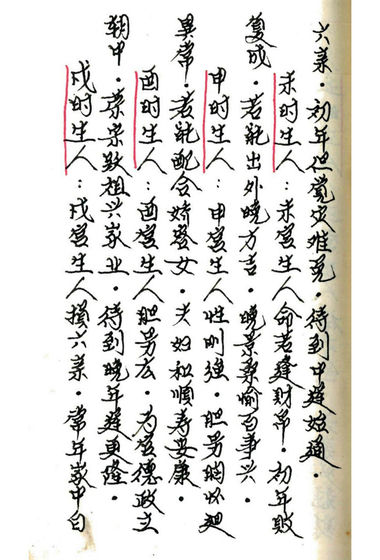 六亲．初年但觉灾难免．待到中逢始通．
未时生人：未宫生人命若逢财帛．初年败
复成．若能出外晓方吉．晚景桑榆百事兴．
申时生人：申宫生人性刚强．胆男胸怀
異常．若能配合娇登女．夫妇和顺寿安康．
酉时生人：酉宫生人胆男应．为官德政立
朝中．荣宗致祖兴家业．待到晚年逢更隆．
戌时生人：戌宫生人损六亲．常年家中白